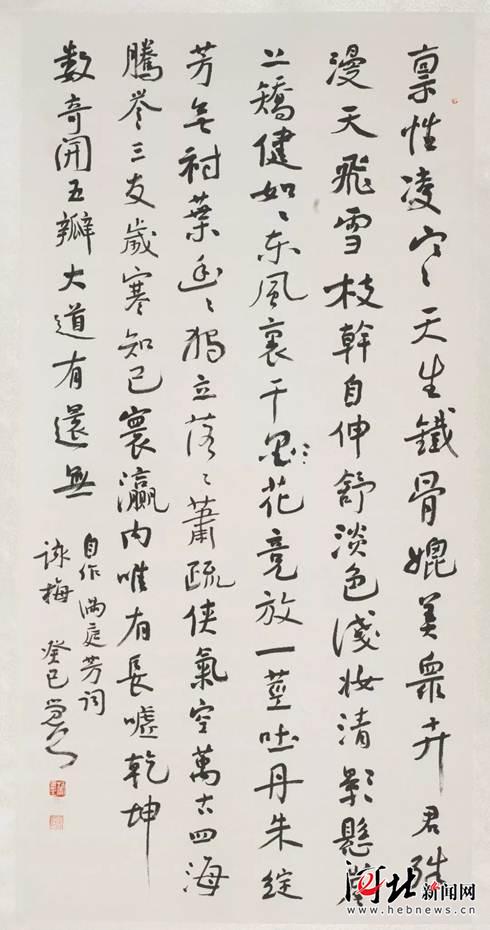 稟性凌寒天生鐵骨媲美眾卉君殊
漫天飛雪枝幹自伸舒淡色淺妝清影懸崖
上矯健如〻東風裏千花競放一莖吐丹朱綻
芳無襯葉〻獨立落〻蕭疏俠氣空萬古四海
騰譽三友歲寒知己寰瀛內唯有長噓乾坤
數奇開五瓣大道有還無
自作滿庭芳詞
詠梅 癸巳
河北新闻网
www.hebnews.cn